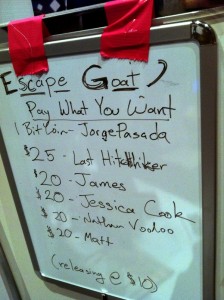 Escape Goat)
Pay What You Want
1 BitCoin - Jorge Pasada
$25 - Last Hitchhiker
$20 - James
$20 - Jessica Cook
$20 - Nathan Voodoo
$20 - Matt
(releasing @ $10)